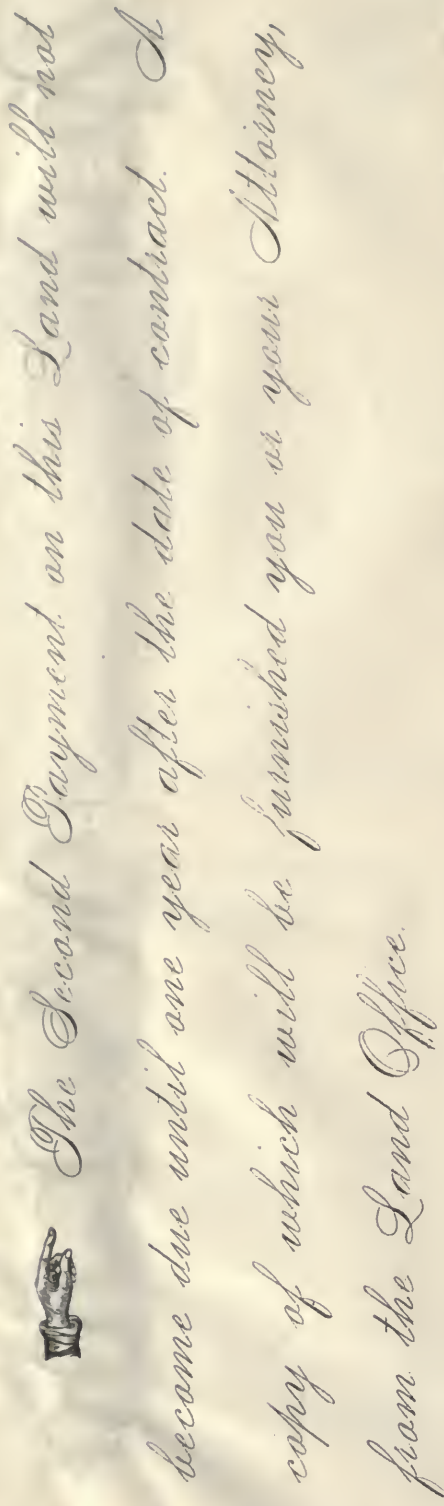 The Second Payment on this Land will not
become due until one year after the date of contract. A
copy of which will be furnished you or your Attorney,
from the Land Office.